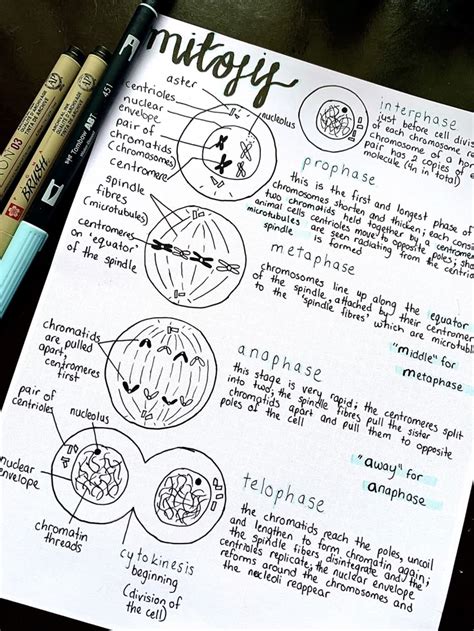 mitosis
aster
centrioles
nuclear
envelope
nucleolus
pair of
chromatids
(chromosomes)
centromere
spindle
fibres
(microtubules)
centromeres
on "equator"
of the spindle
chromatids
are pulled
apart;
centromeres
first
pair of
centrioles
nucleolus
nuclear
envelope
chromatin
threads
cytokinesis
beginning
(division of
the cell)
interphase
just before cell divi
of each chromosome
chromosome of a hom
pair has 2 copies of
molecule (4n in total)
prophase
this is the first and longest phase of
chromosomes shorten and thicken; each come
two chromatids held together by centromer
animal cells centrioles move to opposite poles; sh
microtubules are seen radiating from the centri
spindle is formed
metaphase
chromosomes line up along the equator
of the spindle, attached by their centromer
to the 'spindle fibres' which are microtubul
"middle" for
metaphase
anaphase
this stage is very rapid; the centromeres split
into two; the spindle fibres pull the sister
chromatids apart and pull them to opposite
poles of the cell
"away" for
anaphase
telophase
the chromatids reach the poles, uncoil
and lengthen to form chromatin again;
the spindle fibers disintegrate and the
centrioles replicate; the nuclear envelope
reforms around the chromosomes and
the nucleoli reappear
03
BRUSH
Tombow ABT
451